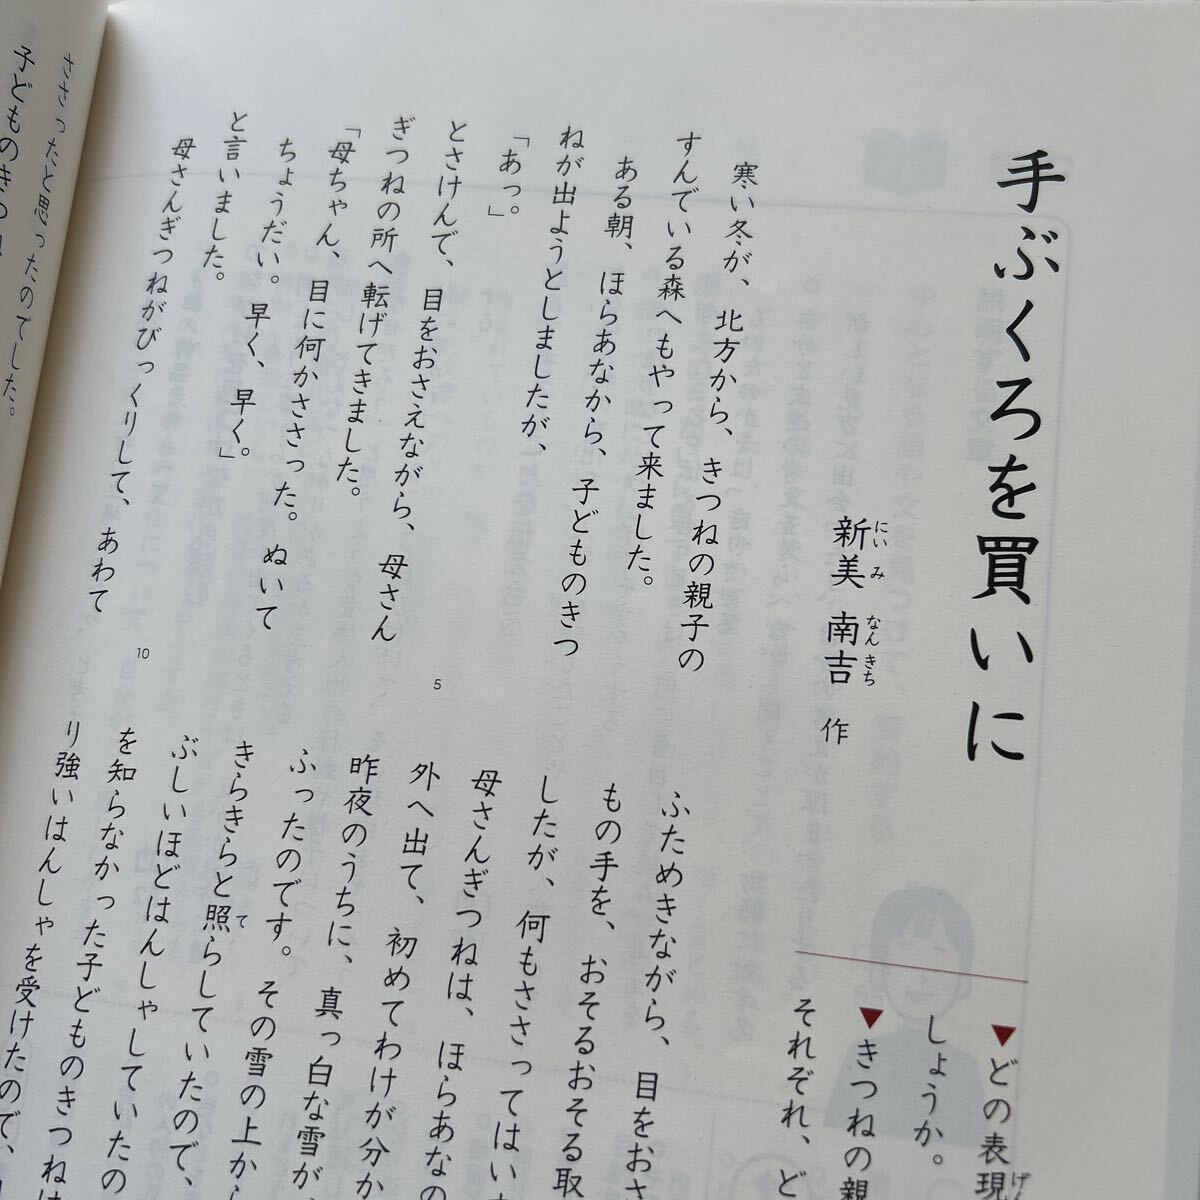 手ぶくろを買いに
新美　南吉　作
にいみ　なんきち
▼どの表現
げん
しょうか。
▼きつねの親
それぞれ、ど
寒い冬が、北方から、きつねの親子の
すんでいる森へもやって来ました。
ある朝、ほらあなから、子どものきつ
ねが出ようとしましたが、
「あっ。」
とさけんで、目をおさえながら、母さん
5
ぎつねの所へ転げてきました。
「母ちゃん、目に何かささった。ぬいて
ちょうだい。早く、早く。」
と言いました。
母さんぎつねがびっくりして、あわて
10
ふためきながら、目をおさ
もの手を、おそるおそる取
したが、何もささってはい
母さんぎつねは、ほらあなの
外へ出て、初めてわけが分か
昨夜のうちに、真っ白な雪が、
ふったのです。その雪の上から
きらきらと照らしていたので、
て
ぶしいほどはんしゃしていたの
を知らなかった子どものきつねは
り強いはんしゃを受けたので、
ささったと思ったのでした。
子どものきつね